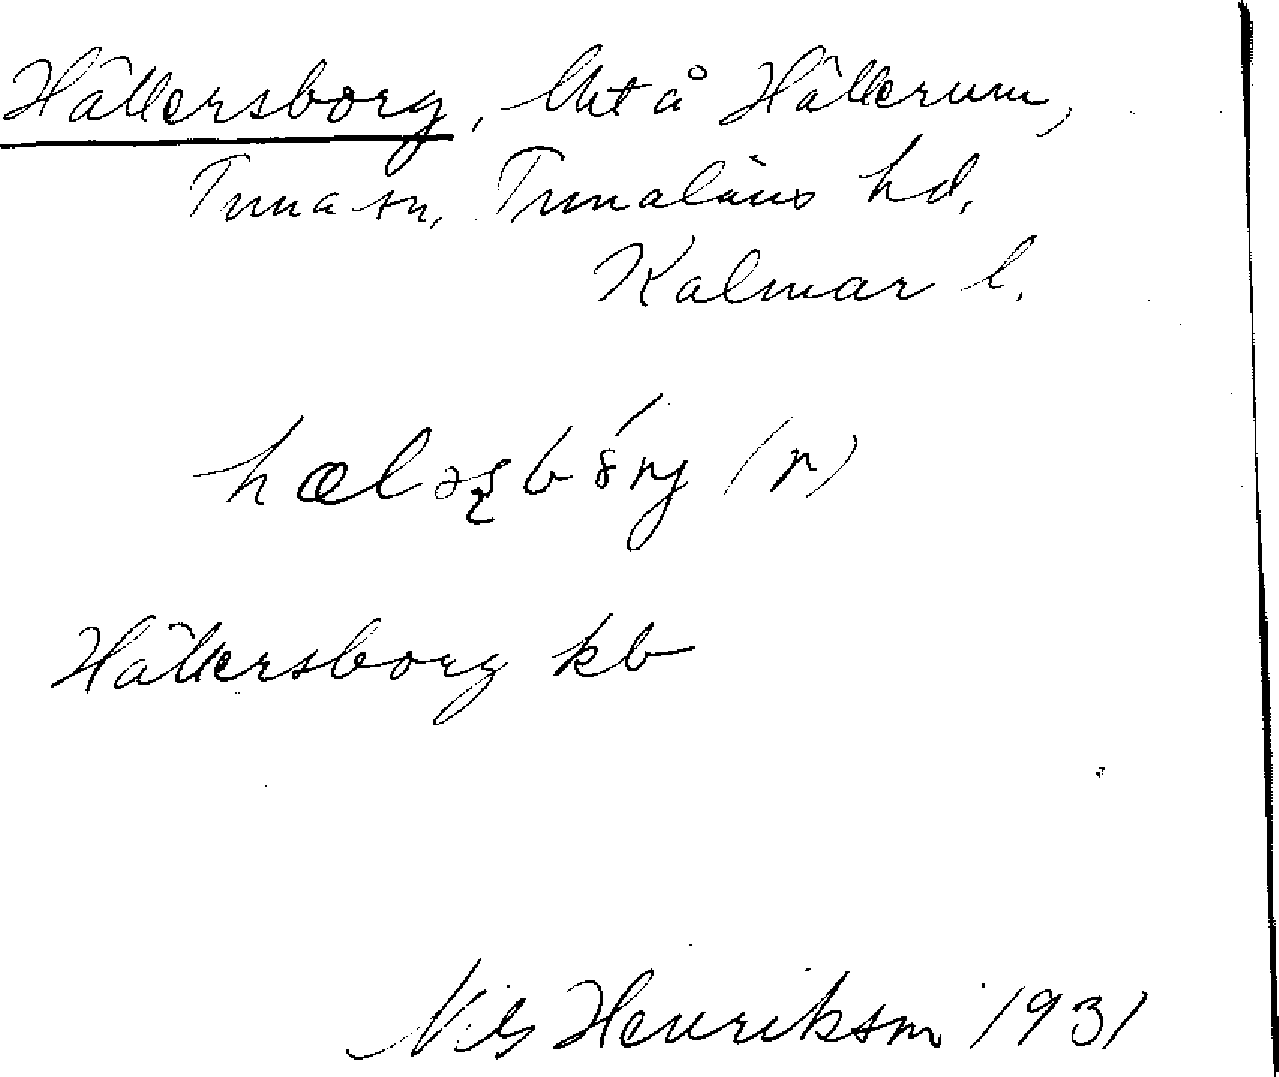 Hällersborg, lht å Hällerum,
Tuna sn, Tunaläns hd,
Kalmar l.
hæləʂbórj (r)
Hällersborg kb
Nils Henriksson 1931